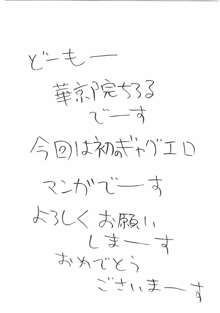 どーもー
華京院ちろる
でーす
今回は初のギャグエロ
マンガでーす
よろしくお願い
しまーす
おめでとう
ございまーす